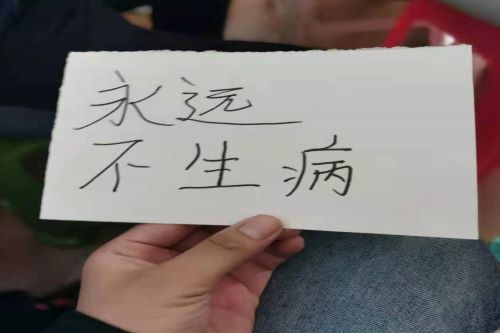 永远
不生病